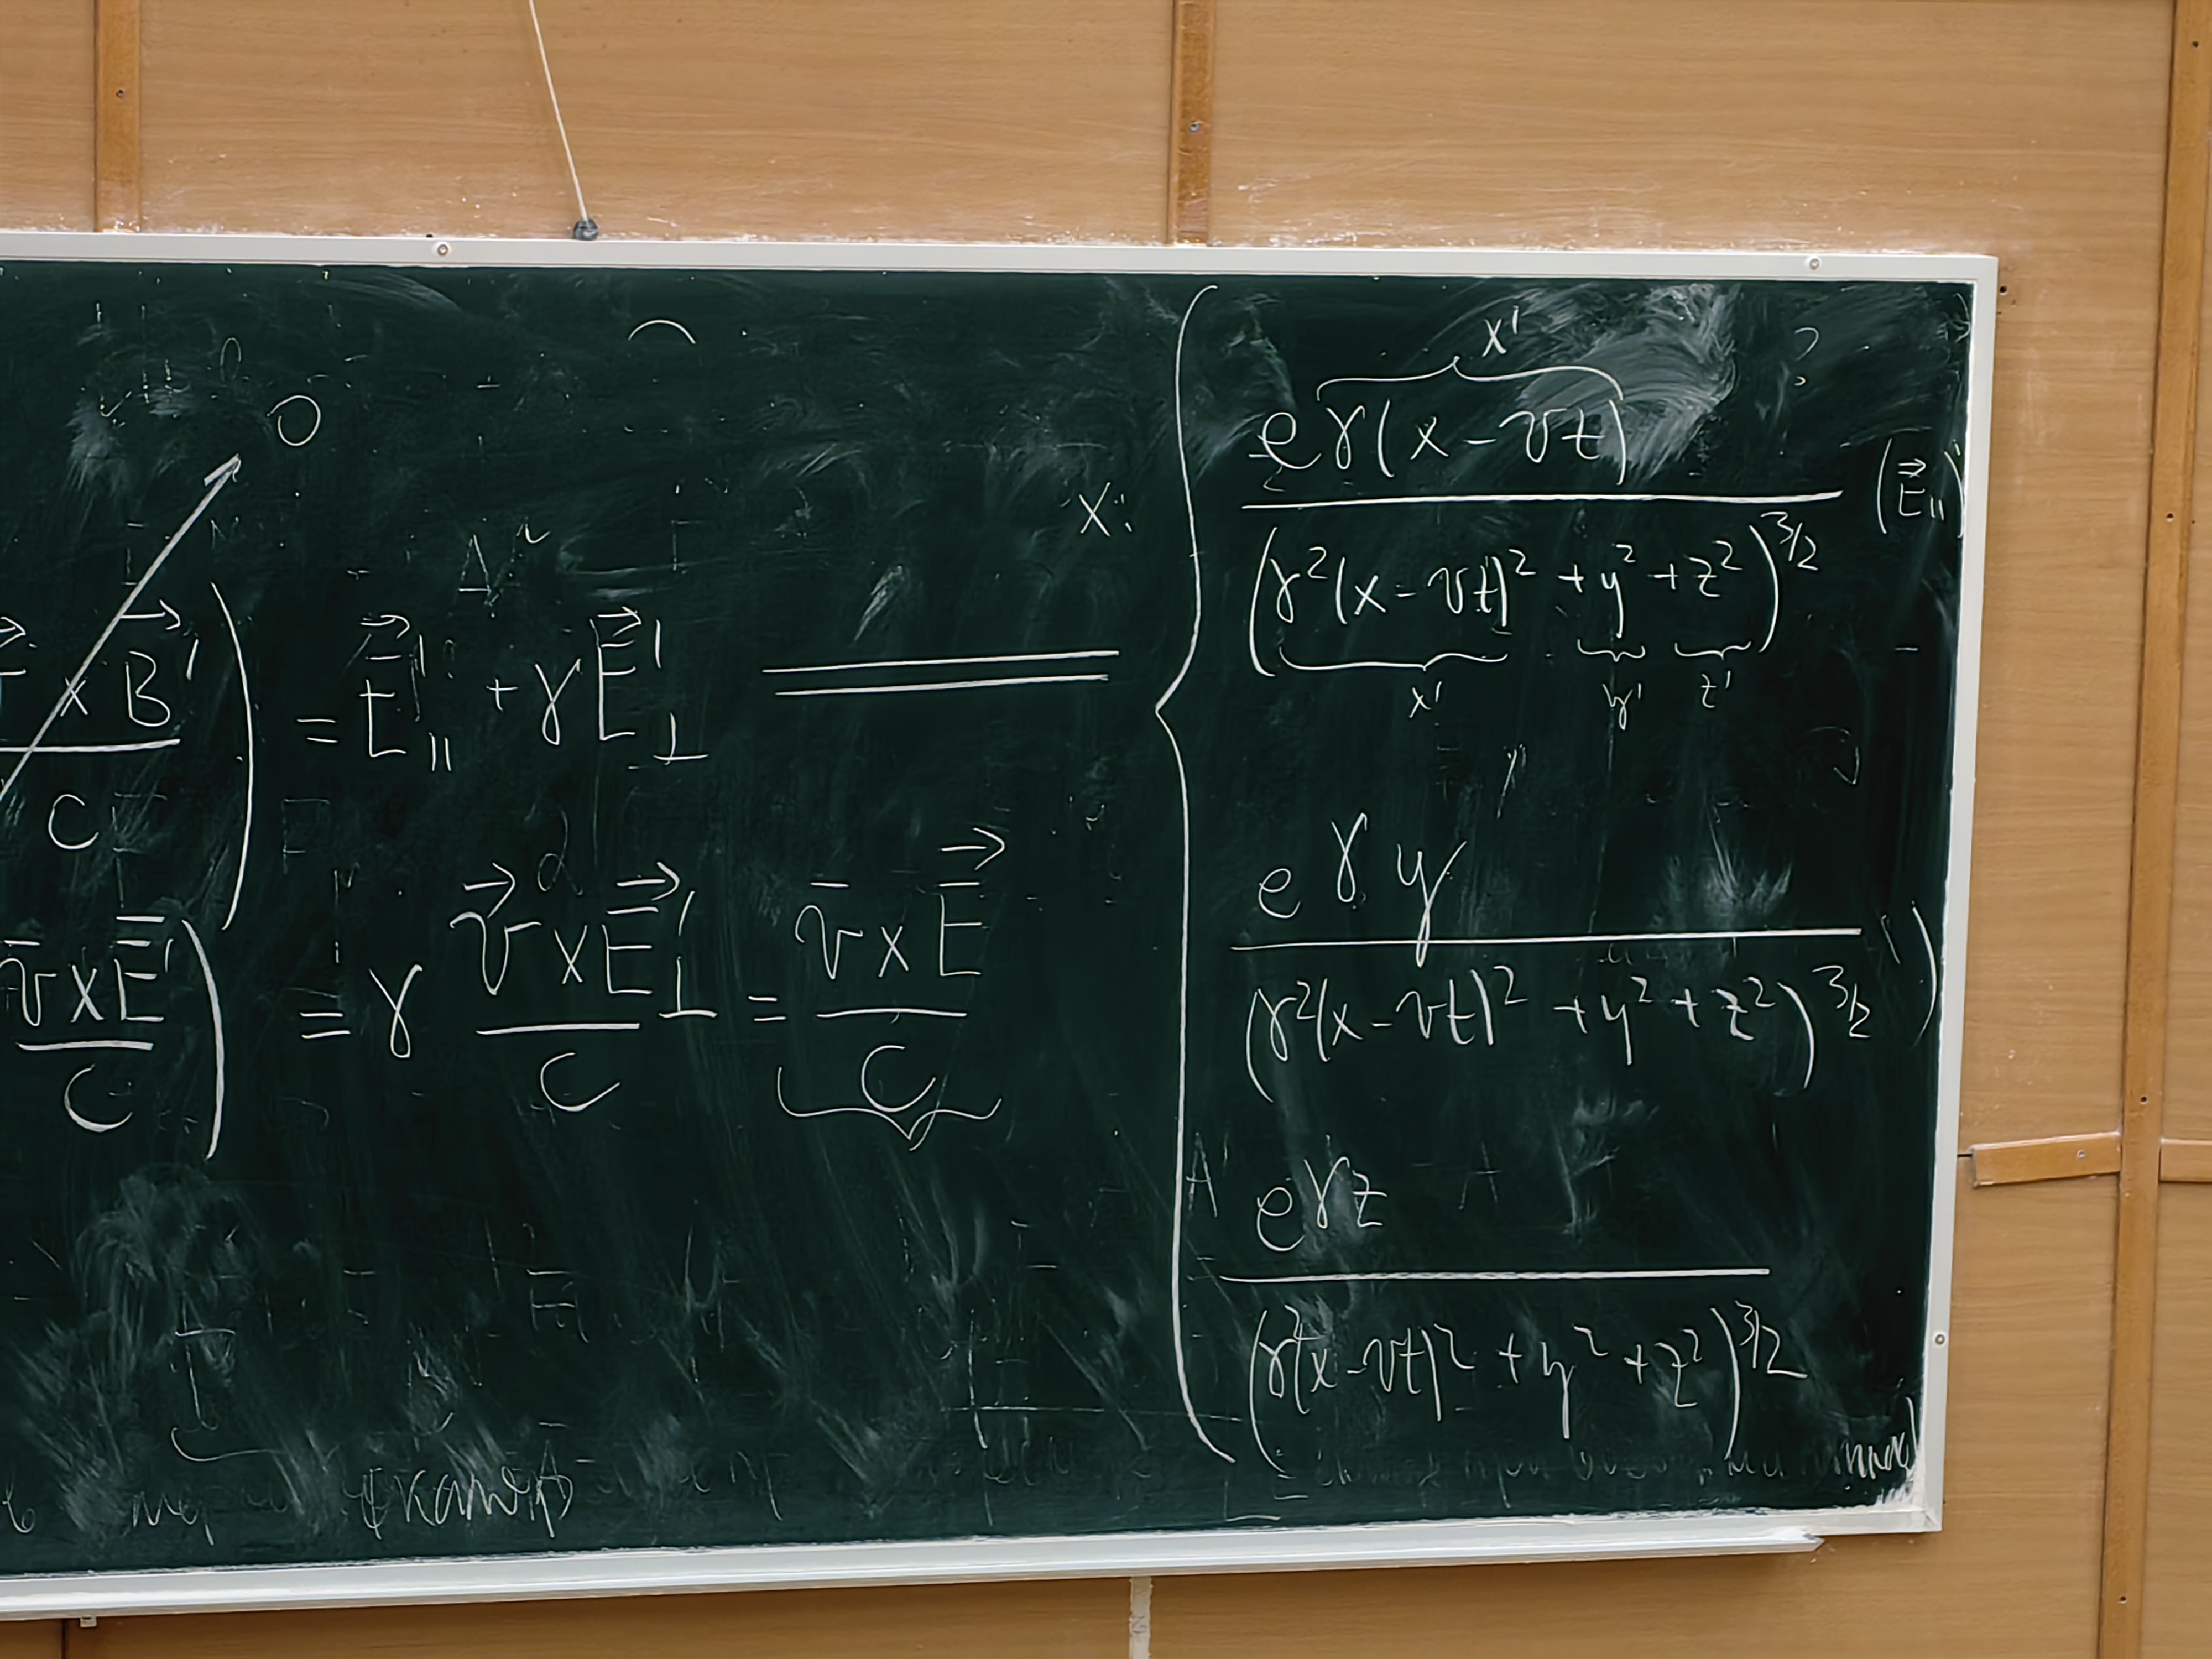 0
x × B⃗′ / c ) = E⃗′∥ + γE⃗′⊥
v̄ × E̅′ / c ) = γ v⃗ × E⃗′⊥ / c = v̄ × E⃗ / c
x:
x′
eγ(x − vt) / (γ²(x − vt)² + y² + z²)^3/2 (E⃗∥)′
x′ y′ z′
eγy / (γ²(x − vt)² + y² + z²)^3/2
eγz / (γ²(x − vt)² + y² + z²)^3/2